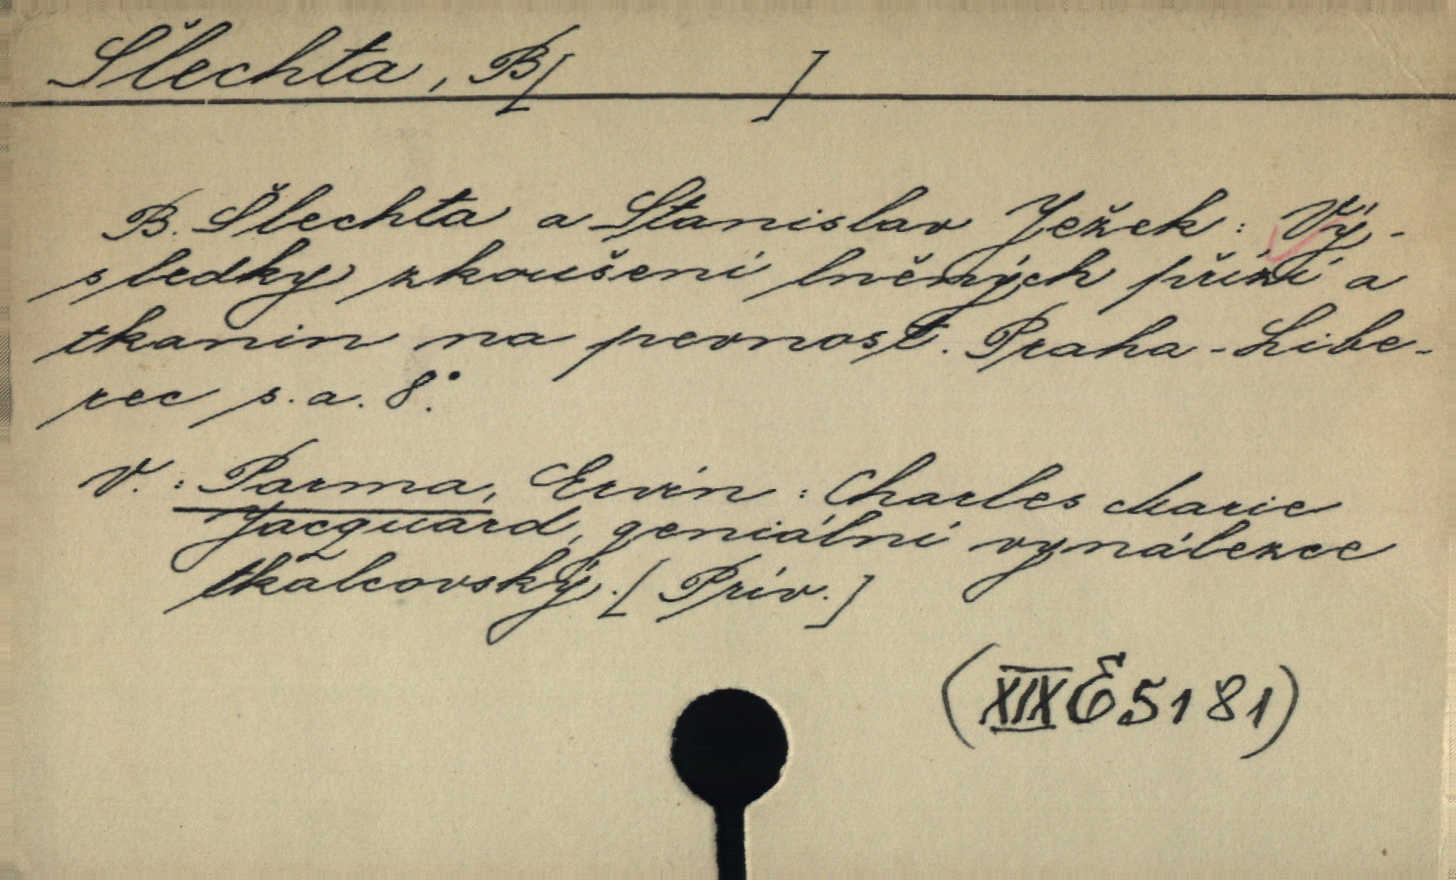 Šlechta, B[ ]
B. Šlechta a Stanislav Ježek: Vý-
sledky zkoušení lněných přízí a
tkanin na pevnost. Praha-Libe-
rec s.a. 8°.
V.: Parma, Ervín: Charles Marie
Jacquard, geniální vynálezce
tkalcovský. [Přív.]
(XIX E 5181)